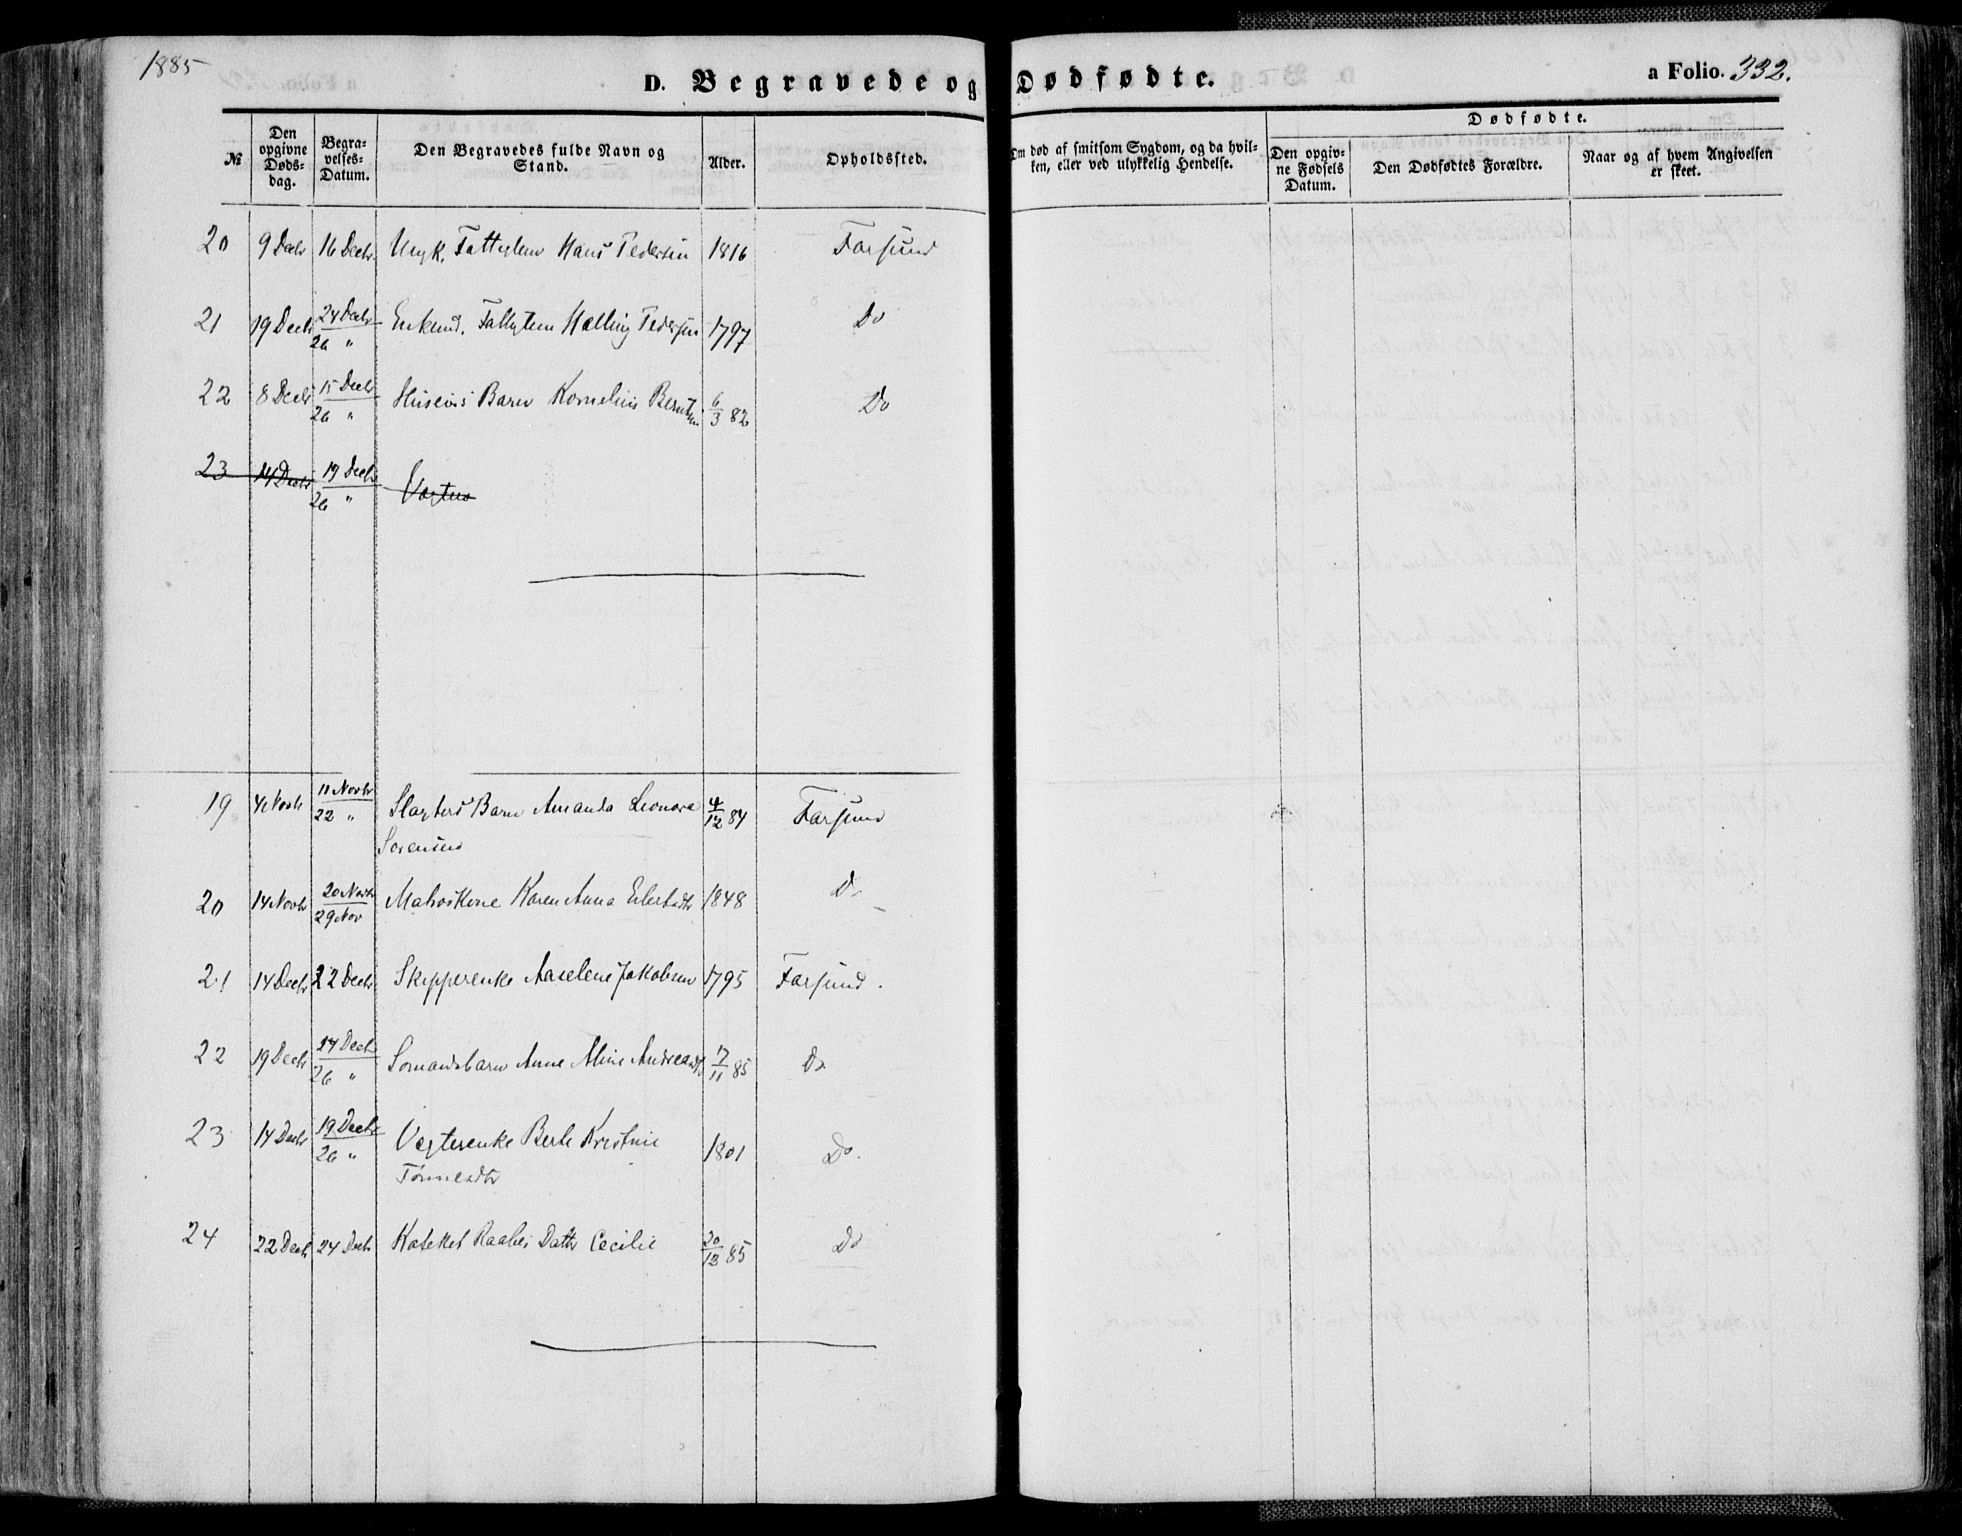 1885
D. Begravede og Dødfødte.
a Folio. 332.
№
Den opgivne Døds-dag.
Begra-velses-Datum.
Den Begravedes fulde Navn og Stand.
Alder.
Opholdssted.
Om død af smitsom Sygdom, og da hvil-ken, eller ved ulykkelig Hendelse.
Dødfødte.
Den opgiv-ne Fødsels Datum.
Den Dødfødtes Forældre.
Naar og af hvem Angivelsen er skeet.
20 9 Decbr 16 Decbr. Ungk. Fattiglem Hans Pedersen 1816 Farsund
21 19 Decbr 24 Decbr / 26 " Enkemd. Fattiglem Halling Pedersen 1797 Do
22 8 Decbr 15 Decbr / 26 " Barn Kornelius Berntsen 6/3 82 Do
23 14 Decbr 19 Decbr / 26 " Vægter
19 4 Novbr 11 Novbr / 22 " Slagters Barn Amanda Leonore 4/12 84 Farsund
Sørensen
20 14 Novbr 20 Novbr / 29 Nov Matroskone Karen Anna 1848 Do
21 14 Decbr 22 Decbr Skipperenke Aaselene Jakobsen 1795 Farsund.
22 19 Decbr 24 Decbr / 26 " Sømandsbarn Anne Aline Andreasdtr 17/11 85 Do
23 14 Decbr 19 Decbr / 26 " Vægterenke Berte Kristine 1801 Do.
Tønnesdtr
24 22 Decbr 24 Decbr Kateket Raabes Dattr Cecilie 20/12 85 Do